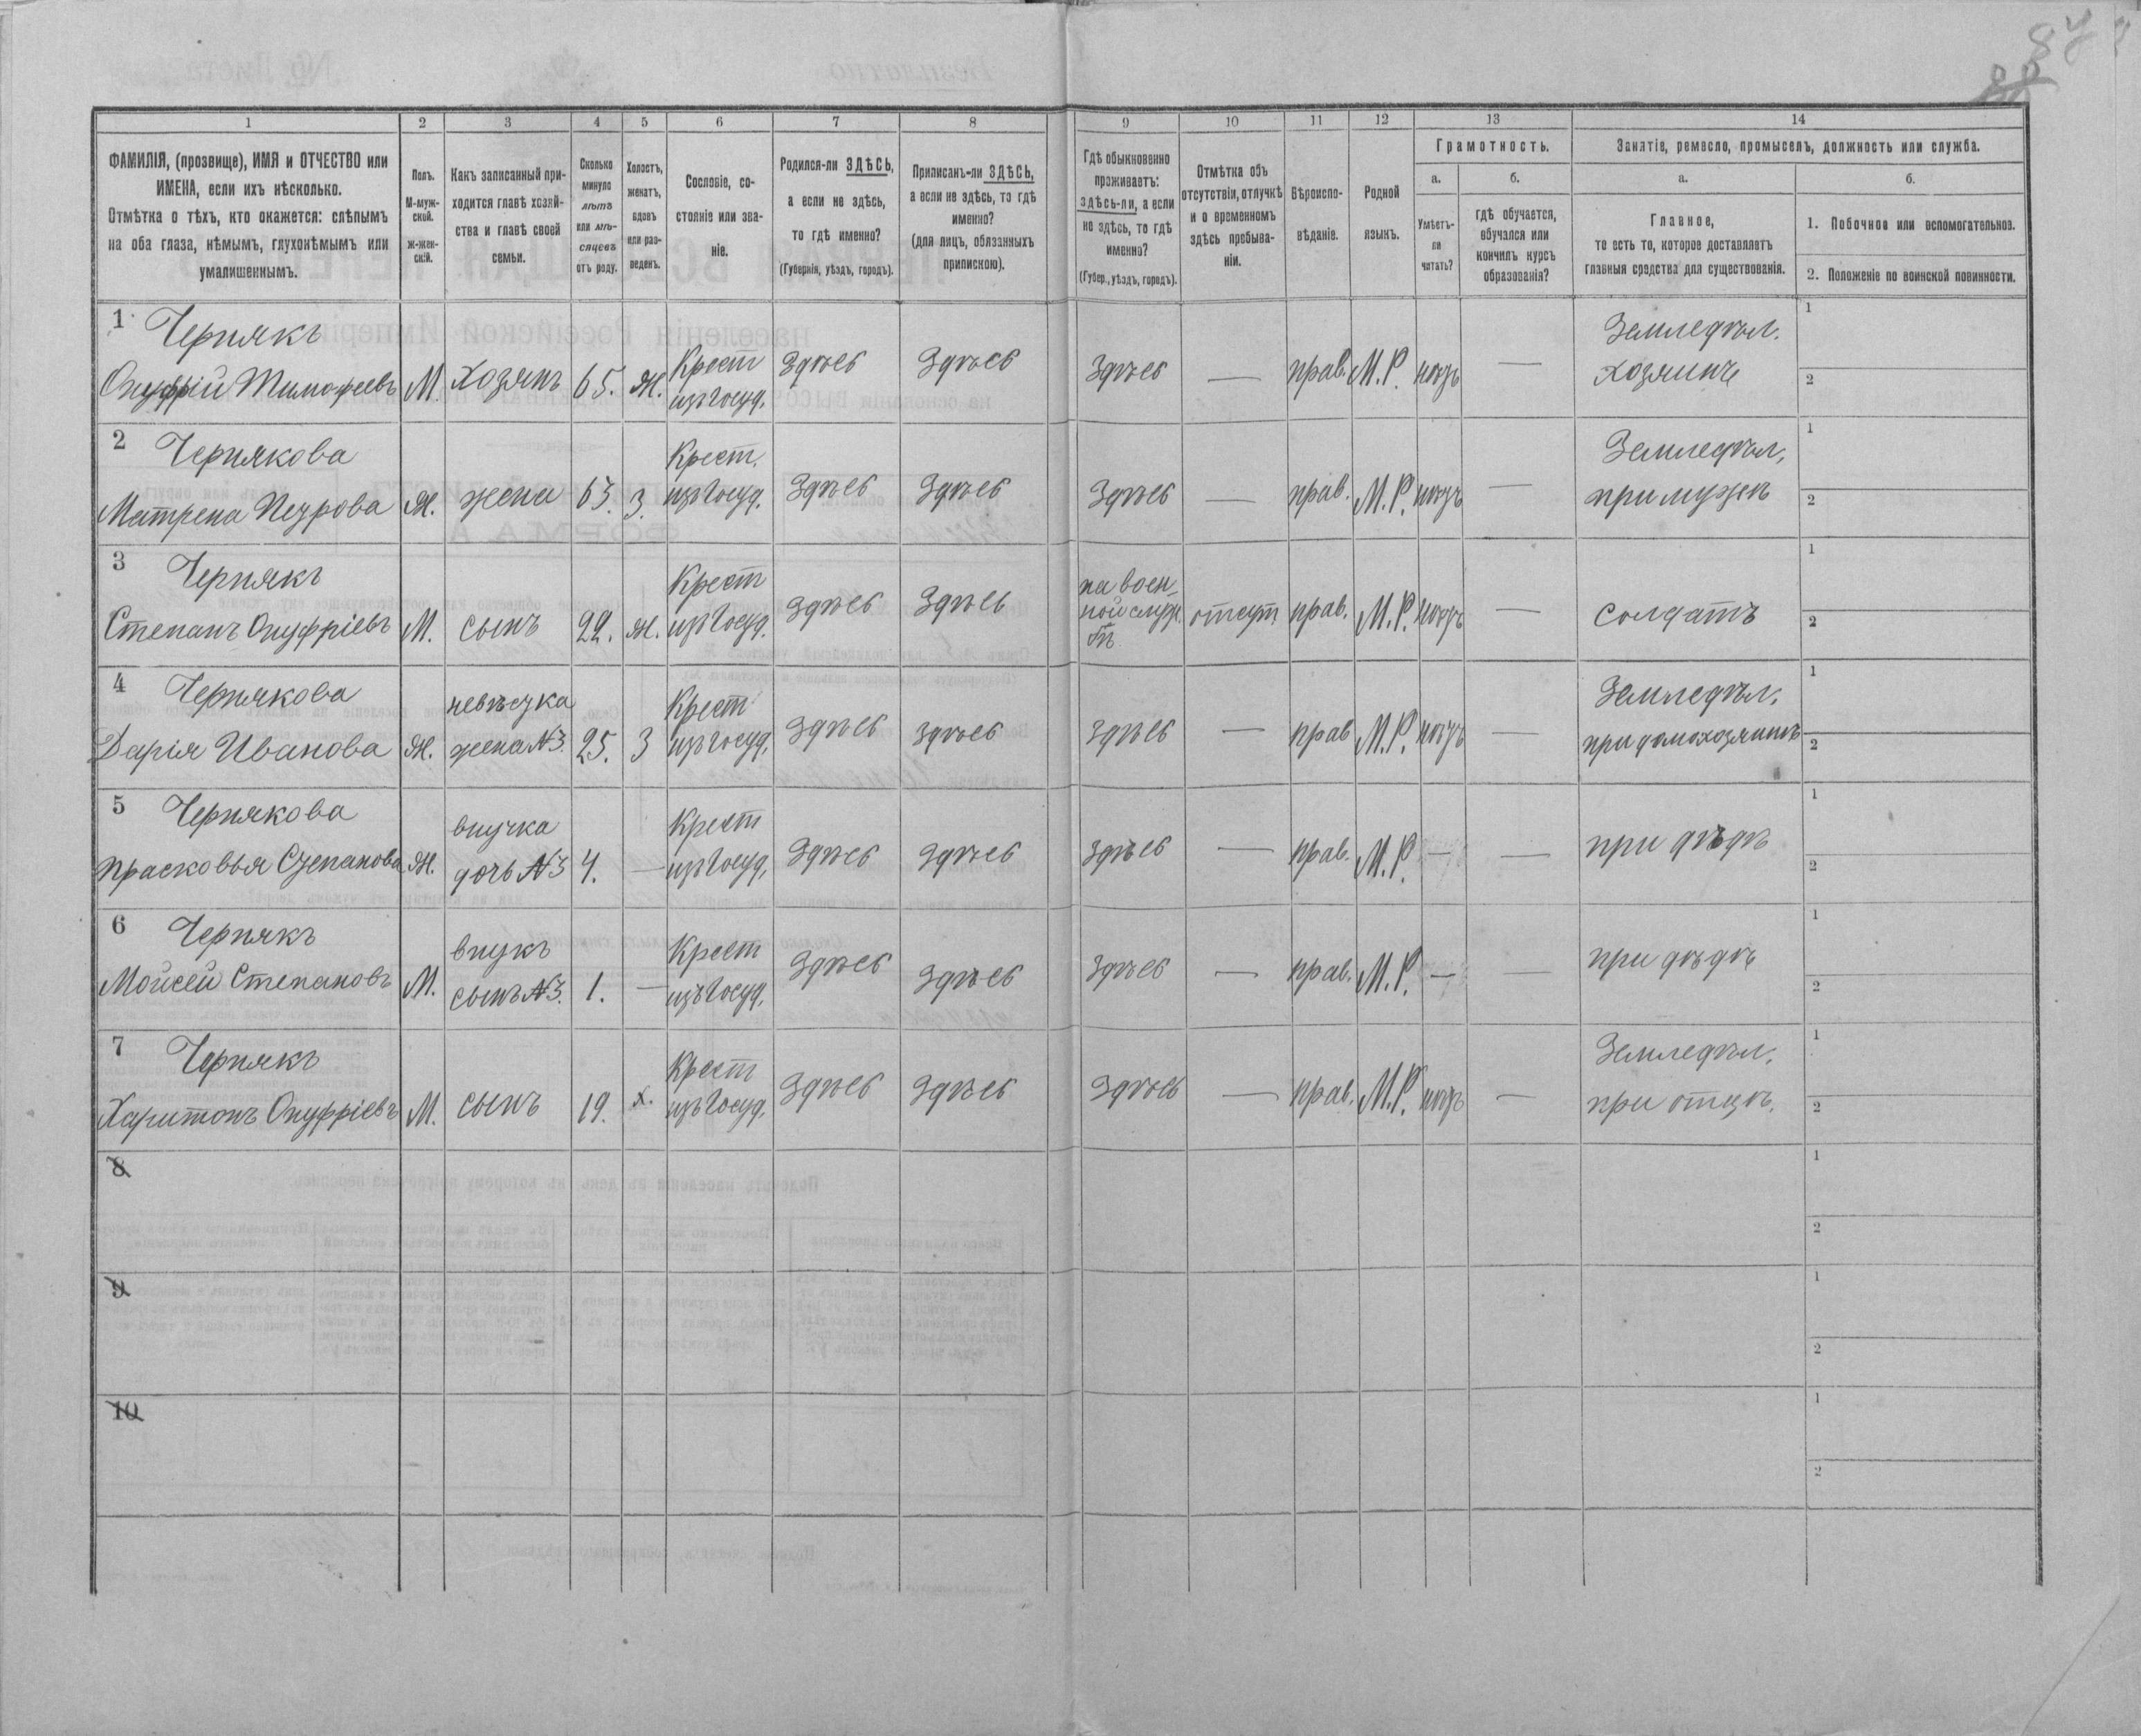 87
88
1 2 3 4 5 6 7 8 9 10 11 12 13 14
ФАМИЛІЯ, (прозвище), ИМЯ и ОТЧЕСТВО или
ИМЕНА, если ихъ нѣсколько.
Отмѣтка о тѣхъ, кто окажется: слѣпымъ
на оба глаза, нѣмымъ, глухонѣмымъ или
умалишеннымъ.
Полъ.
М-муж-
ской.
Ж-жен-
скій.
Какъ записанный при-
ходится главѣ хозяй-
ства и главѣ своей
семьи.
Сколько
минуло
лѣтъ
или мѣ-
сяцевъ
отъ роду.
Холостъ,
женатъ,
вдовъ
или раз-
веденъ.
Сословіе, со-
стояніе или зва-
ніе.
Родился-ли ЗДѢСЬ,
а если не здѣсь,
то гдѣ именно?
(Губернія, уѣздъ, городъ).
Приписанъ-ли ЗДѢСЬ,
а если не здѣсь, то гдѣ
именно?
(для лицъ, обязанныхъ
припискою).
Гдѣ обыкновенно
проживаетъ:
здѣсь-ли, а если
не здѣсь, то гдѣ
именно?
(Губер., уѣздъ, городъ).
Отмѣтка объ
отсутствіи, отлучкѣ
и о временномъ
здѣсь пребыва-
ніи.
Вѣроиспо-
вѣданіе.
Родной
языкъ.
Грамотность.
а.
Умѣетъ-
ли
читать?
б.
гдѣ обучается,
обучался или
кончилъ курсъ
образованія?
Занятіе, ремесло, промыселъ, должность или служба.
а.
Главное,
то есть то, которое доставляетъ
главныя средства для существованія.
б.
1. Побочное или вспомогательное.
2. Положеніе по воинской повинности.
1 Чернякъ Крест Земледѣл. 1
Онуфрій Тимофеевъ М. Хозяинъ 65. Ж. изъ госуд. Здѣсь Здѣсь Здѣсь — прав. М.Р. нѣтъ — хозяинъ 2
2 Чернякова Крест. Земледѣл, 1
Матрена Петрова Ж. жена 63. З. изъ госуд. Здѣсь Здѣсь Здѣсь — прав. М.Р. нѣтъ — при мужѣ 2
3 Чернякъ Крест на воен- 1
Степанъ Онуфріевъ М. сынъ 22. Ж. изъ госуд. Здѣсь Здѣсь ной служ. отсут. прав. М.Р. нѣтъ — солдатъ 2
бѣ
4 Чернякова невѣстка Крест Земледѣл. 1
Дарія Иванова Ж. жена №3. 25. З изъ госуд. Здѣсь Здѣсь Здѣсь — прав М.Р. нѣтъ — при домохозяинѣ 2
5 Чернякова внучка Крест 1
Прасковья Степанова Ж. дочь №3 4. — изъ госуд. Здѣсь Здѣсь Здѣсь — прав. М.Р. — — при дѣдѣ 2
6 Чернякъ внукъ Крест 1
Мойсей Степановъ М. сынъ №3. 1. — изъ госуд. Здѣсь Здѣсь Здѣсь — прав. М.Р. — — при дѣдѣ 2
7 Чернякъ Крест Земледѣл. 1
Харитонъ Онуфріевъ М. сынъ 19. х. изъ госуд. Здѣсь Здѣсь Здѣсь — прав. М.Р. нѣтъ — при отцѣ. 2
8 1
2
9 1
2
10 1
2